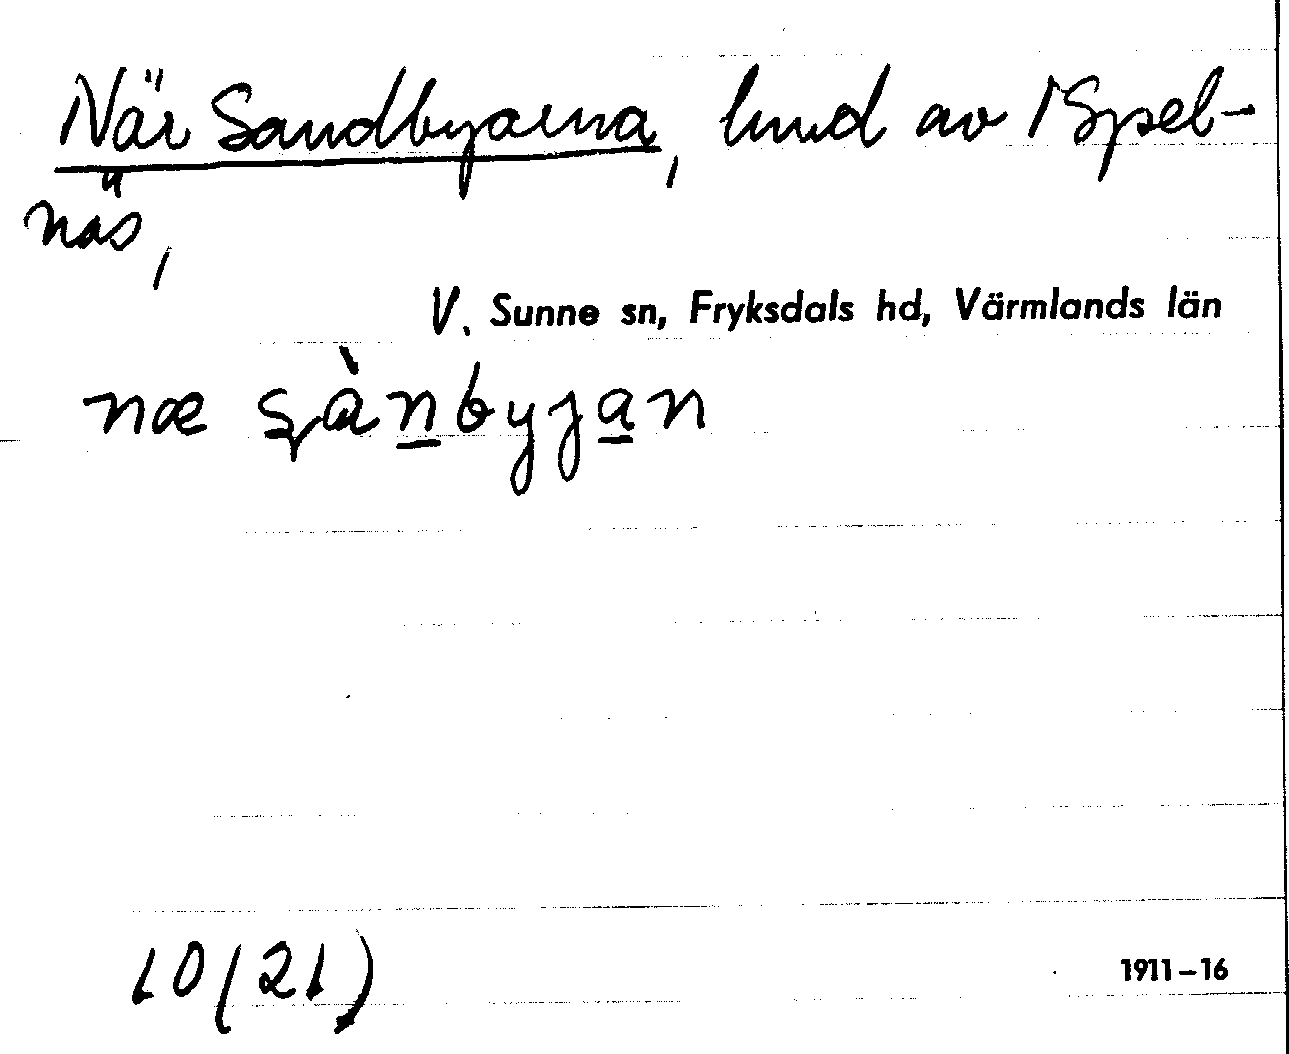 När Sandbyarna, lund av 1 Spel-
näs,
V. Sunne sn, Fryksdals hd, Värmlands län
næ sànbyjan
10(21)
1911-16